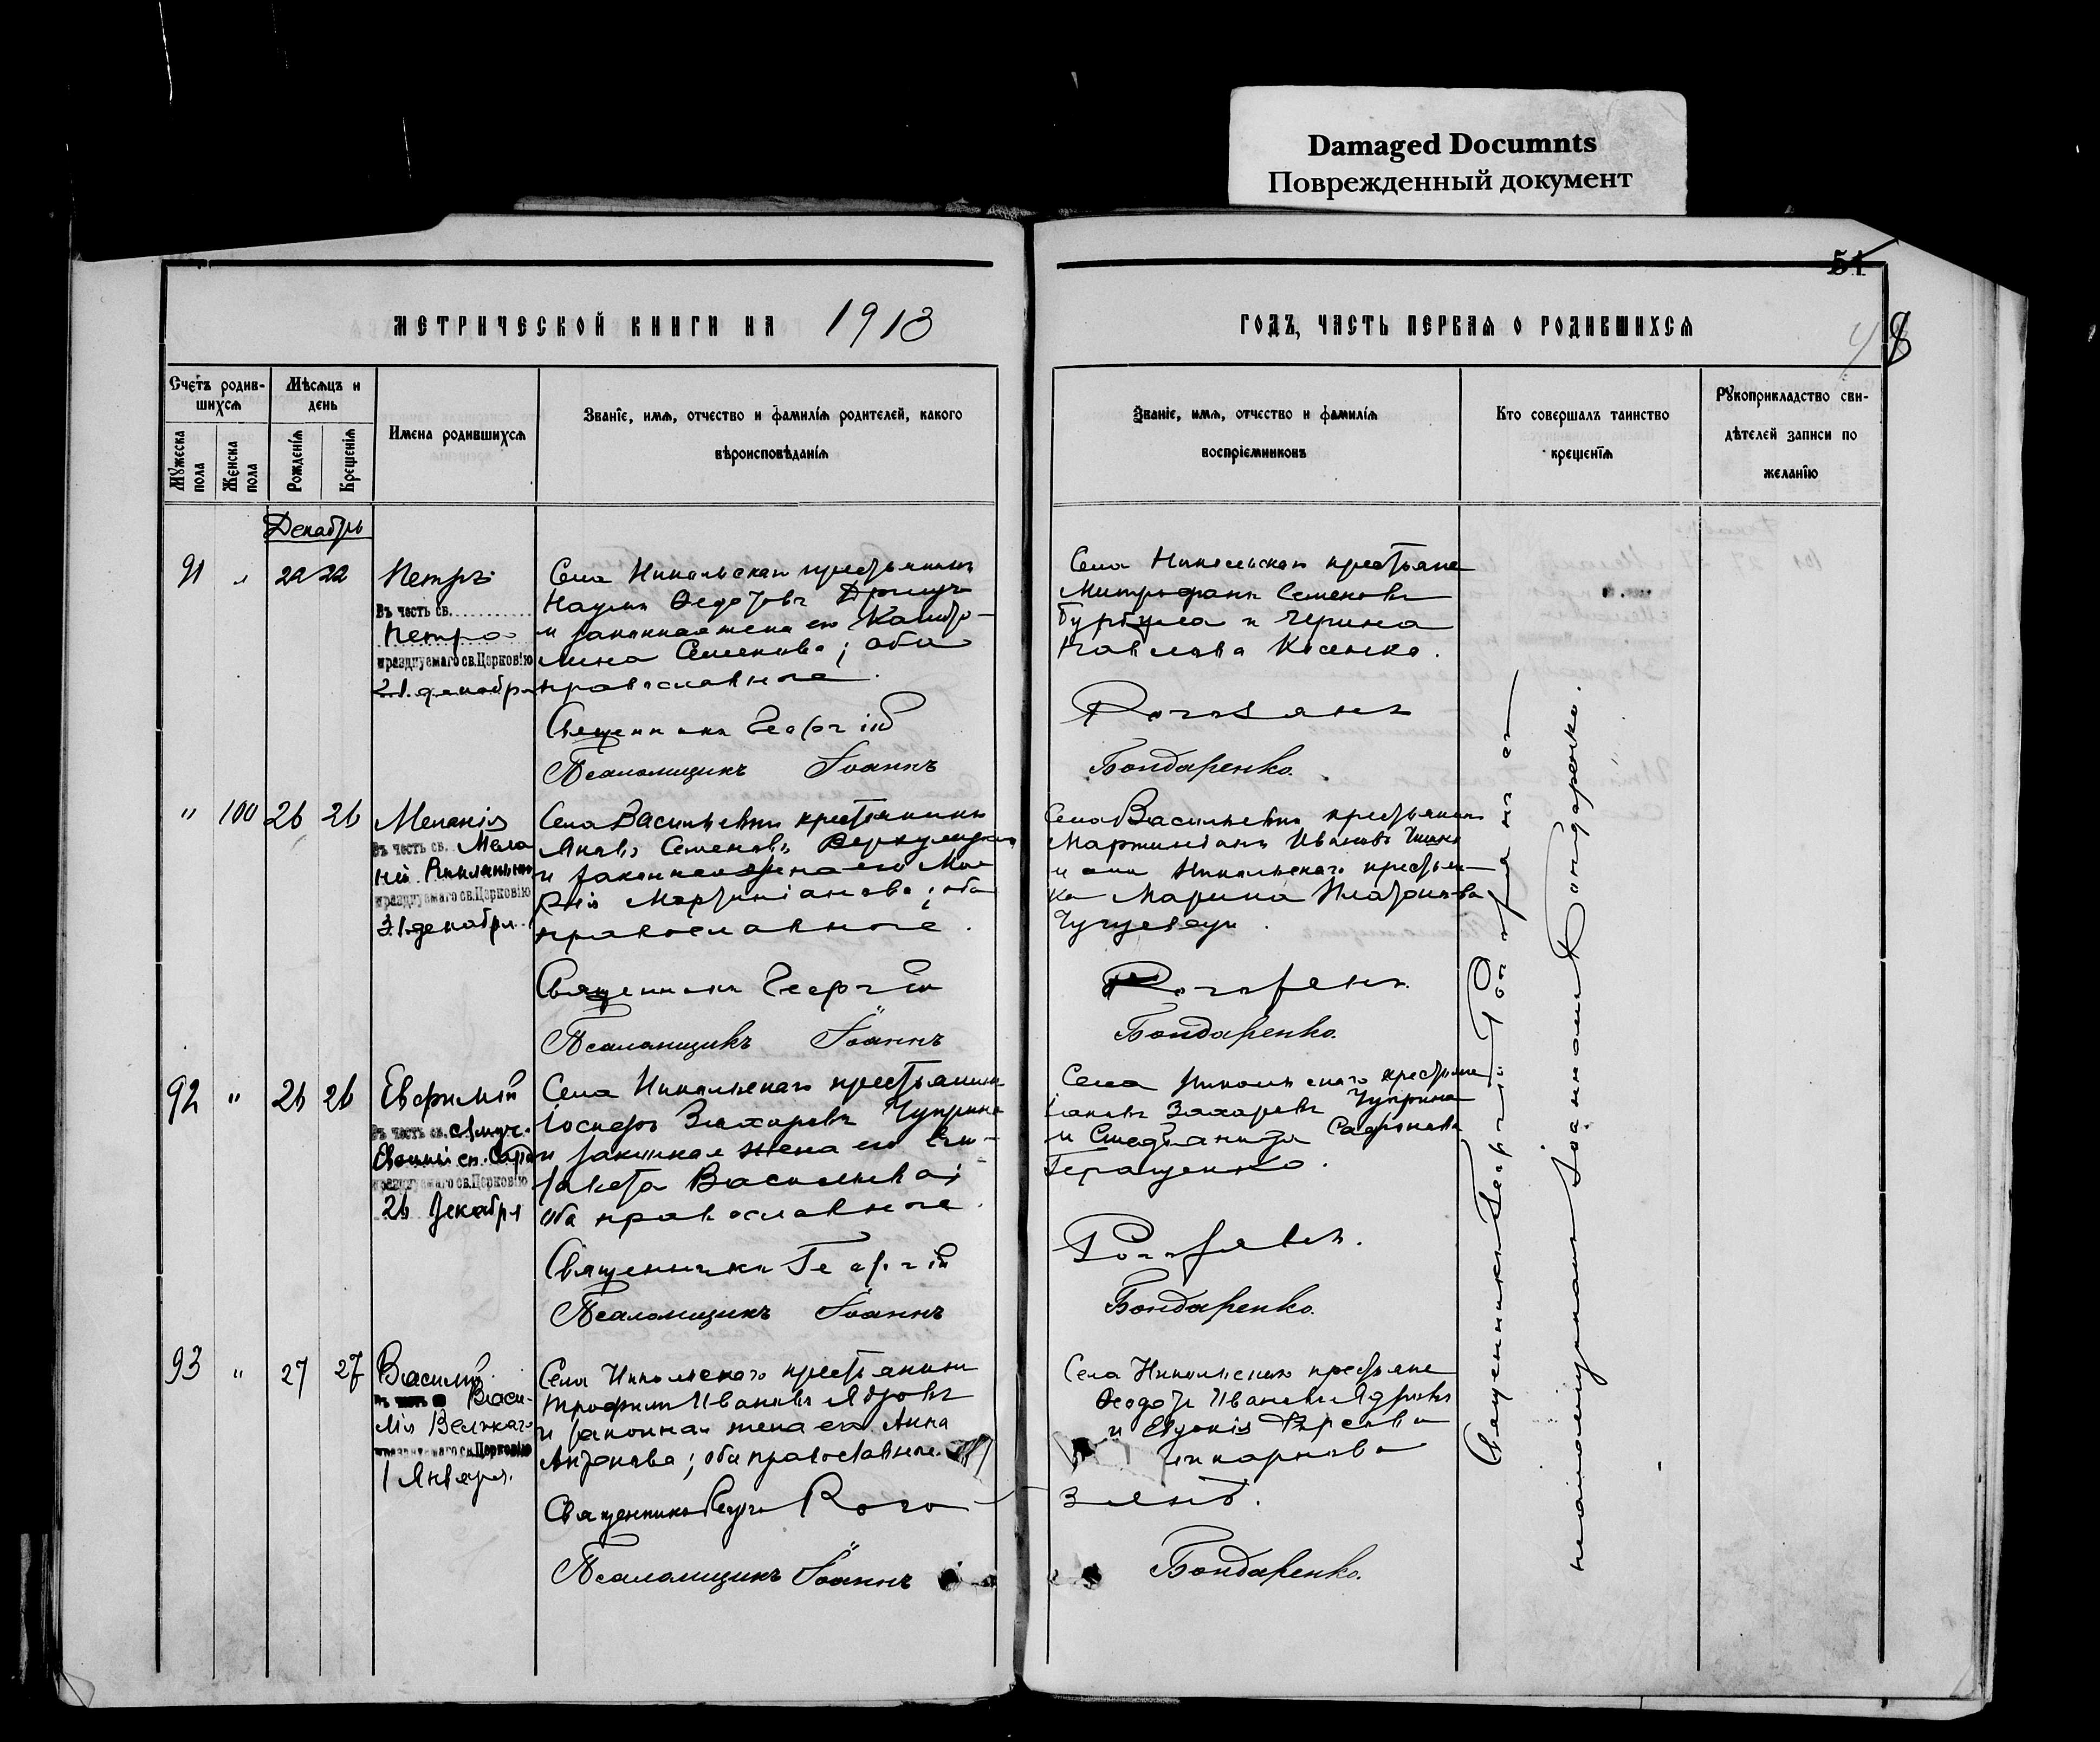 Damaged Documnts
Поврежденный документ
51
МЕТРИЧЕСКОЙ КНИГИ НА 1913
ГОДЪ, ЧАСТЬ ПЕРВАЯ О РОДИВШИХСЯ
8
Счетъ родив-
шихся
Мѣсяцъ и
день
Мужеска
пола
Женска
пола
Рожденія
Крещенія
Имена родившихся
Званіе, имя, отчество и фамилія родителей, какого
вѣроисповѣданія
Званіе, имя, отчество и фамилія
воспріемниковъ
Кто совершалъ таинство
крещенія
Рукоприкладство сви-
дѣтелей записи по
желанію
Декабрь
91 " 22 22
Петръ
Въ честь св.
Петра
празднуемаго св. Церковію
21 декабря
Села Никольскаго крестьянинъ
Наумъ Ѳедотовъ
и законная жена его
Семенова; оба
православные.
Священникъ Георгій
Псаломщикъ Іоаннъ
Села Никольскаго крестьяне
Митрофанъ Семеновъ
и
Павлова
Рогозянъ
Бондаренко.
" 100 26 26
Меланія
Въ честь св. Мела
ніи Римлянын
празднуемаго св. Церковію
31 декабря
Села Васильевки крестьянинъ
Яковъ Семеновъ
и законная жена его Ма
рія Мартиніанова; оба
православные.
Священникъ Георгій
Псаломщикъ Іоаннъ
Села Васильевки крестьянинъ
Мартиніанъ Ивановъ
и села Никольскаго крестьян
ка Марина Платонова
Рогозянъ.
Бондаренко.
92 " 26 26
Евфимій
Въ честь св. Смуч.
Евфимія еп. Сард
празднуемаго св. Церковію
26 декабря
Села Никольскаго крестьянинъ
Іосифъ Захаровъ Чуприна
и законная жена его Ели-
завета Васильева;
оба православные.
Священникъ Георгій
Псаломщикъ Іоаннъ
Села Никольскаго крестьяне
Захаровъ Чуприна
и Степанида Сафронова
Геращенко.
Рогозянъ.
Бондаренко.
93 " 27 27
Василій
въ честь св Васи-
лія Великаго
празднуемаго св. Церковію
1 Января.
Села Никольскаго крестьянинъ
Трофимъ Ивановъ Ядровъ
и законная жена его Анна
Антонова; оба православные.
Священникъ Георгій Рого
Псаломщикъ Іоаннъ
Села Никольскаго крестьяне
Ѳеодотъ Ивановъ Ядровъ
и Евдокія
зянъ.
Бондаренко.
Священникъ Георгій Рогозянъ съ
псаломщикомъ Іоанномъ Бондаренко.